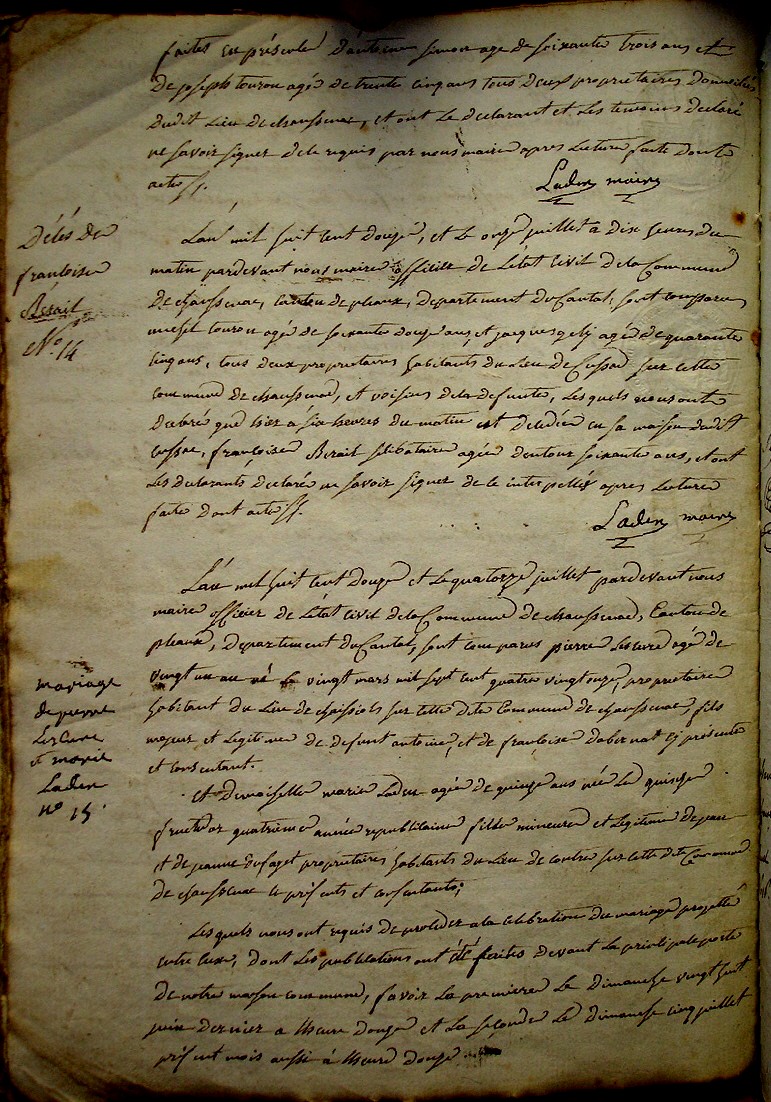 faites en présence d'antoine simon age de soixante trois ans et
de joseph tourou agé de trente cinq ans tous deux propriétaires domiciliés
dudit Lieu de chaussenac, et ont Le declarant et Les temoins declaré
ne savoir signer de le requis par nous maire apres Lecture faite dont
acte
Laden maire
Décés de
françoise
Bérail
N.o 14
L'an mil huit cent douze, et le onze juillet a dix heures du
matin pardevant nous maire officier de L'état civil de la Commune
de chaussenac, canton de pleaux, département du Cantal, sont comparus
tourou agé de soixante douze ans, et jacques agé de quarante
cinq ans, tous deux propriétaires habitants du Lieu de Cussac sur cette
commune de chaussenac, et voisins de la defunte, Les quels nous ont
declaré que hier a six heures du matin est décédée en sa maison dudit
cussac, françoise Berail celibataire agée d'entour soixante ans, et ont
Les declarants declaré ne savoir signer de ce interpellés apres Lecture
faite dont acte
Laden maire
L'an mil huit cent douze et le quatorze juillet pardevant nous
maire officier de L'état civil de la Commune de chaussenac, Canton de
pleaux, département du Cantal, sont comparus pierre Lescure agé de
vingt un an né le vingt mars mil sept cent quatre vingt onze, propriétaire
habitant du Lieu de sur cette dite Commune de chaussenac, fils
majeur et Légitime de defunt antoine, et de françoise dabernat cy présente
et consentant.
mariage
de pierre
Lescure
et marie
Laden
n.o 15.
et demoiselle marie Laden agée de quinze ans née Le quinze
fructidor quatrieme année republicaine fille mineure et Légitime de jean
et de jeanne dufayet propriétaires habitants du Lieu de contre sur cette dite Commune
de chaussenac cy présents et consentants;
Les quels nous ont requis de proceder a la celebration du mariage projetté
entre eux, dont Les publications ont été faites devant La principale porte
de notre maison commune, savoir La premiere Le dimanche vingt huit
juin dernier a L'heure douze et La seconde Le dimanche cinq juillet
présent mois aussi à L'heure douze